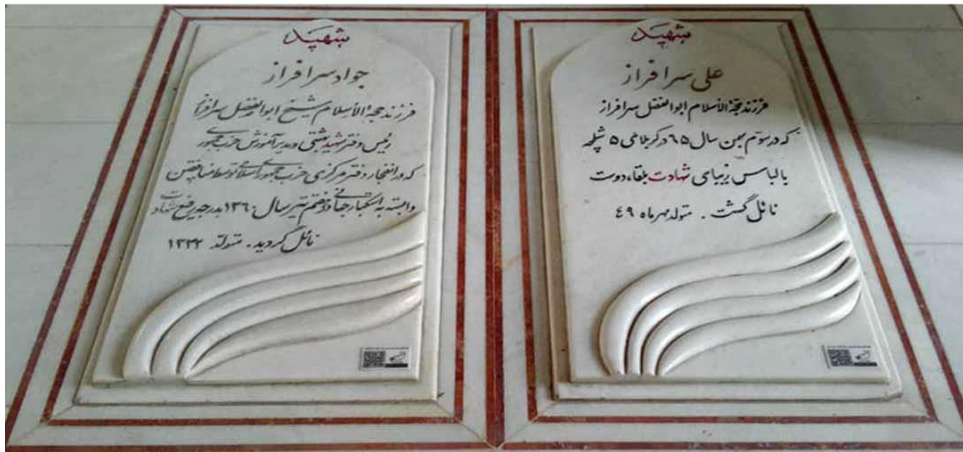 شهید
علی سرافراز
فرزند حجةالاسلام ابوالفضل سرافراز
که در سوم بهمن سال ۶۵ در کربلای ۵ شلمچه
با لباس زیبای شهادت بلقاء دوست
نائل گشت . متولد مهرماه ۴۹
شهید
جواد سرافراز
فرزند حجةالاسلام شیخ ابوالفضل سرافراز
رئیس دفتر شهید بهشتی و مدیر آموزش حزب جمهوری
که در انفجار دفتر مرکزی حزب جمهوری اسلامی توسط منافقین
وابسته به استکبار جهانی در هفتم تیر سال ۱۳۶۰ بدرجه رفیع شهادت
نائل گردید . متولد ۱۳۳۲